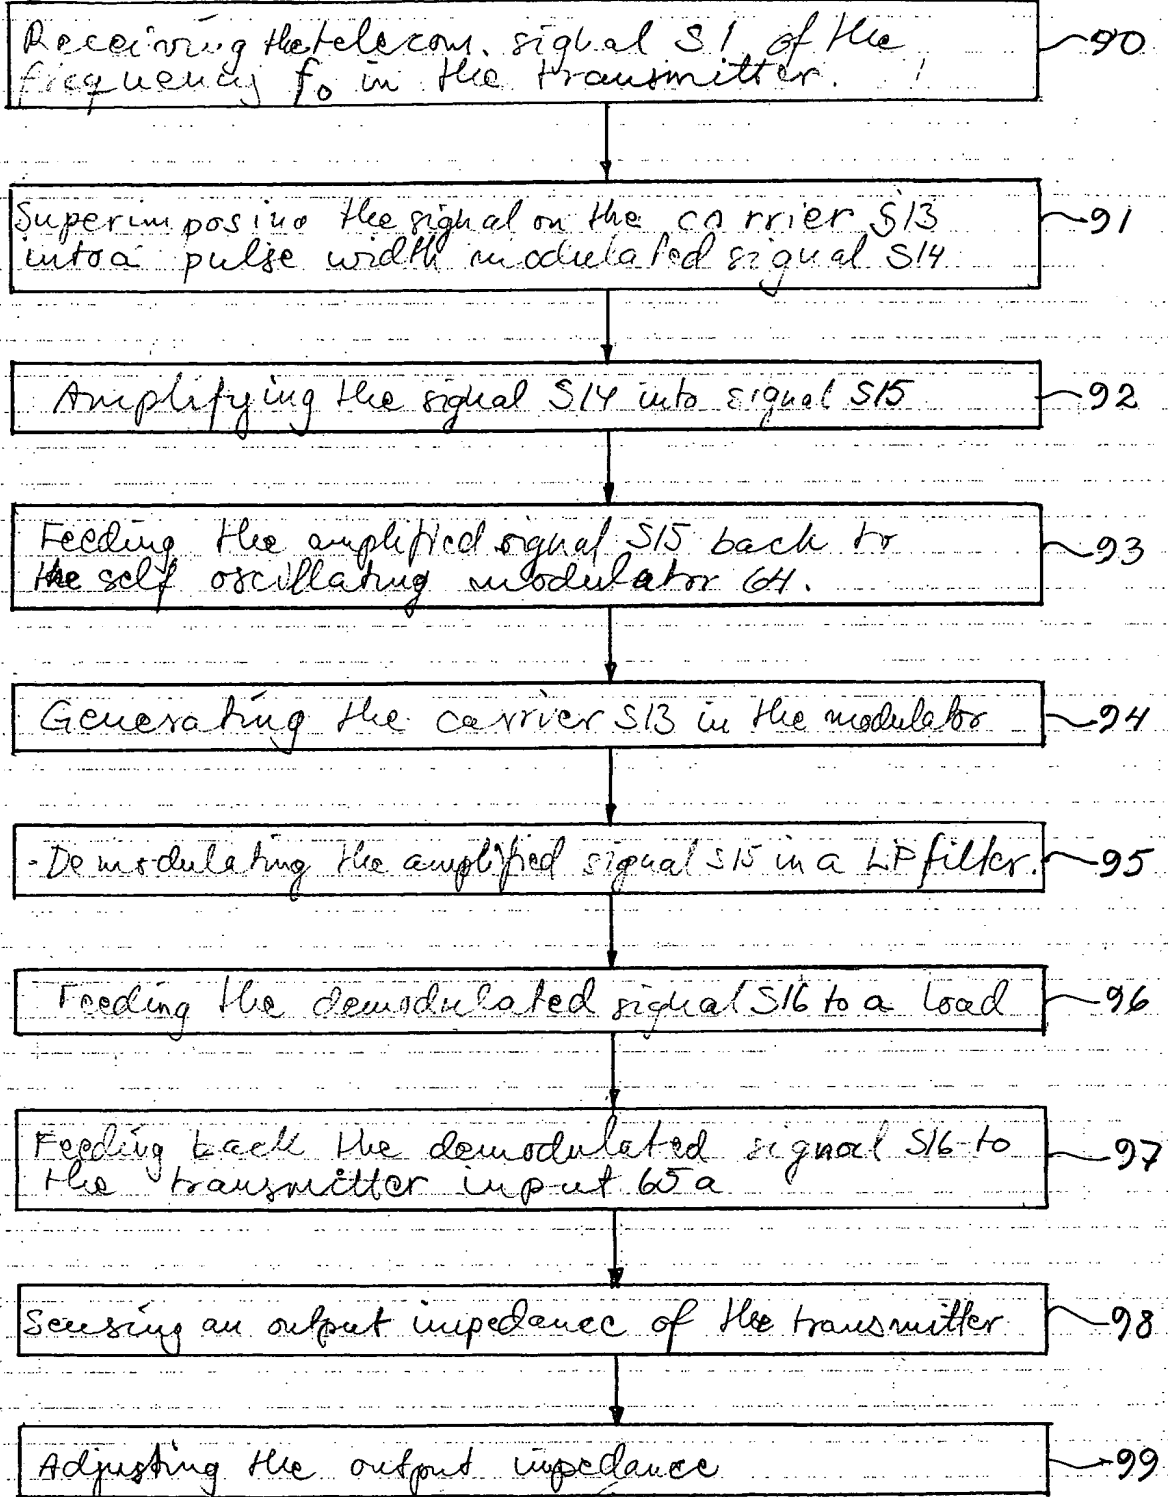 Receiving the telecom. signal S1 of the
90
frequency f0 in the transmitter.
Superimposing the signal on the carrier S13
91
into a pulse width modulated signal S14
Amplifying the signal S14 into signal S15
92
Feeding the amplified signal S15 back to
93
the self oscillating modulator 64.
Generating the carrier S13 in the modulator
94
Demodulating the amplified signal S15 in a LP filter.
95
Feeding the demodulated signal S16 to a load
96
Feeding back the demodulated signal S16 to
97
the transmitter input 65a
Sensing an output impedance of the transmitter
98
Adjusting the output impedance
99